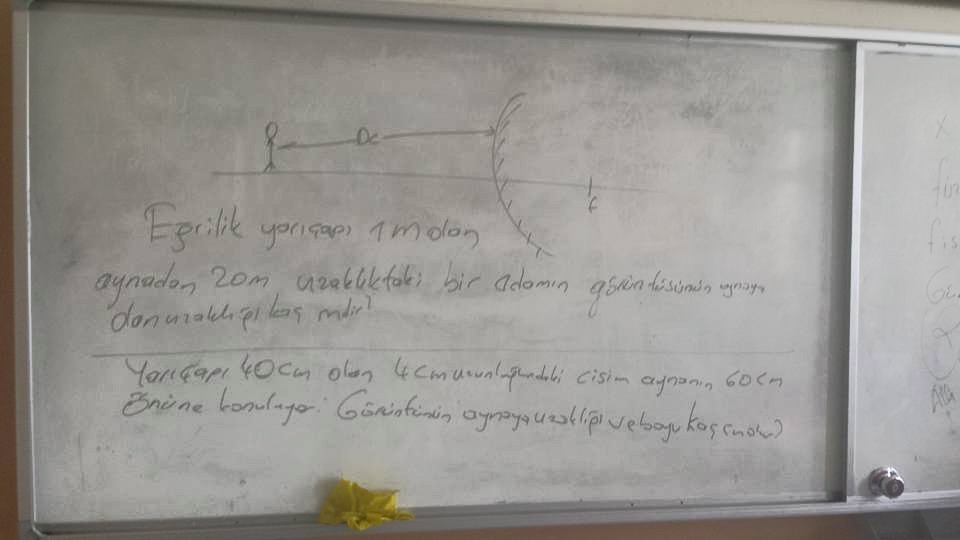 Dc
f
Eğrilik yarıçapı 1m olan
aynadan 20m uzaklıktaki bir adamın görüntüsünün aynaya
dan uzaklığı kaç mdir?
Yarıçapı 40cm olan 4cm uzunluğundaki cisim aynanın 60cm
önüne konuluyor. Görüntünün aynaya uzaklığı ve boyu kaç cm olur?
x
fis